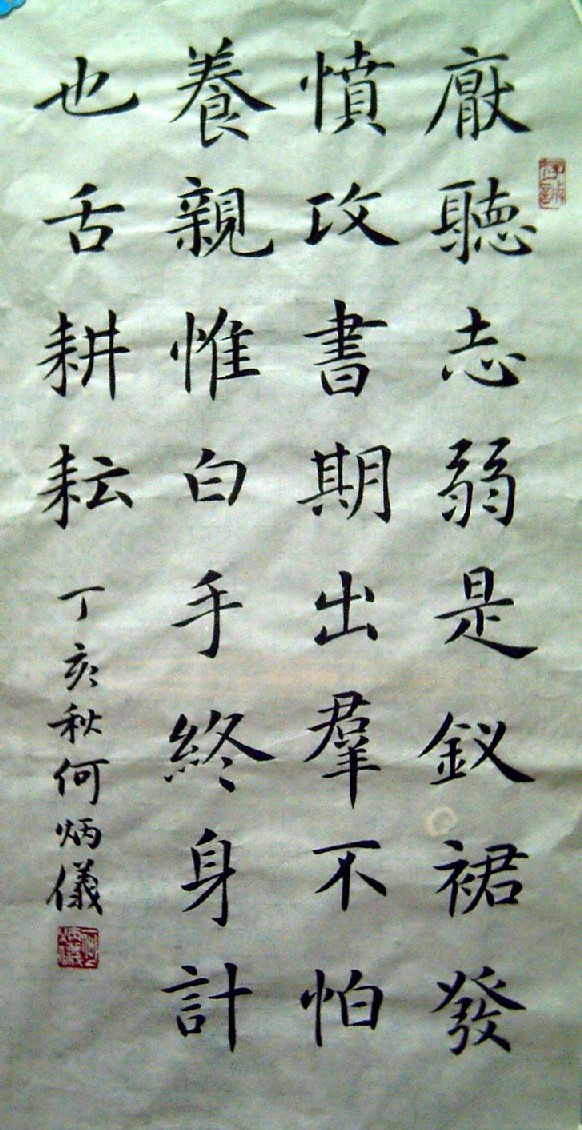 厭聽志弱是釵裙發
憤攻書期出羣不怕
養親惟白手終身計
也舌耕耘
丁亥秋何炳儀